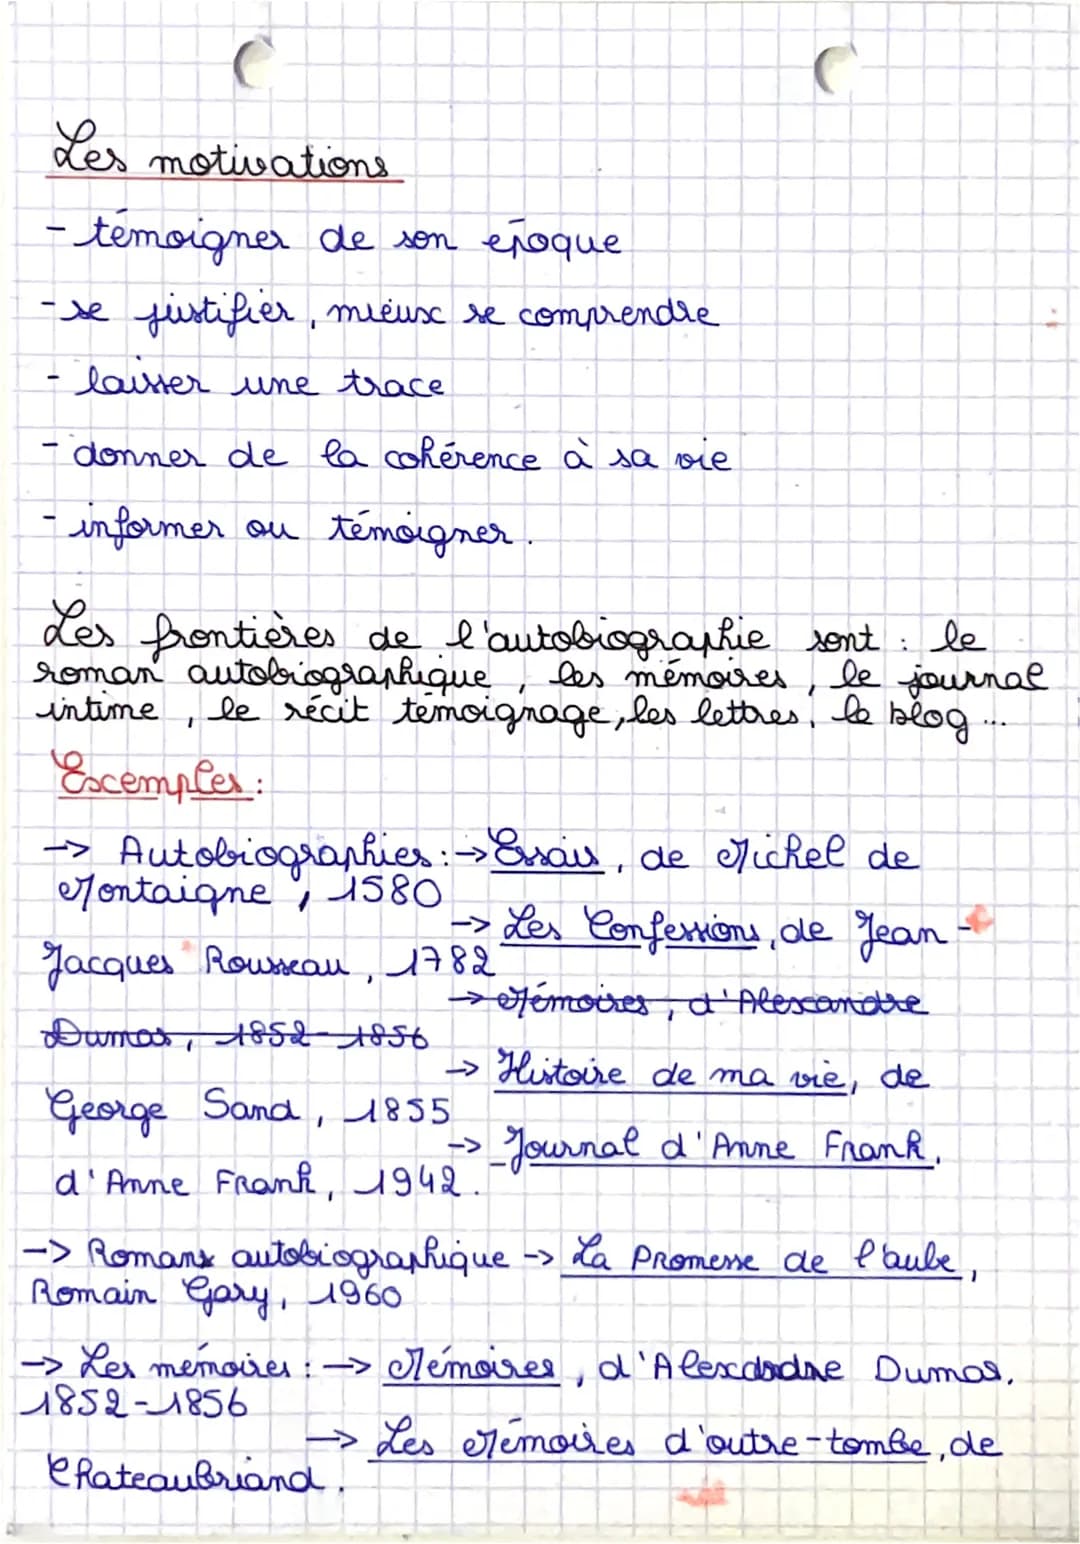 Les motivations
- témoigner de son époque
- se justifier, mieux se comprendre
- laisser une trace
- donner de la cohérence à sa vie
- informer ou témoigner.
Les frontières de l'autobiographie sont : le
roman autobiographique, les mémoires, le journal
intime, le récit témoignage, les lettres, le blog...
Exemples :
-> Autobiographies : -> Essais, de Michel de
Montaigne, 1580
-> Les Confessions, de Jean-
Jacques Rousseau, 1782
-> Mémoires, d'Alexandre
Dumas, 1852-1856
-> Histoire de ma vie, de
George Sand, 1855
-> Journal d'Anne Frank,
d'Anne Frank, 1942.
-> Romans autobiographique -> La Promesse de l'aube,
Romain Gary, 1960
-> Les mémoires : -> Mémoires, d'Alexandre Dumas.
1852-1856
-> Les Mémoires d'outre-tombe, de
Chateaubriand.